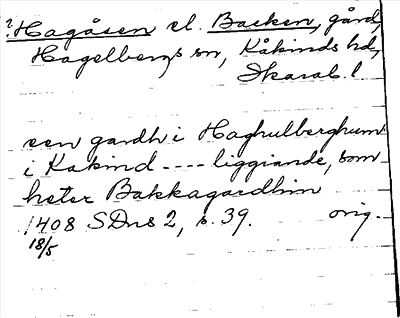 ? Hagåsen el. Backen, gård,
Hagelbergs sn, Kåkinds hd,
Skarab. l
een gardh i Haghulberghum
i Kakind ---- liggiande, som
heter Bakkagardhin
1408 SDns 2, s. 39. orig.
18/5